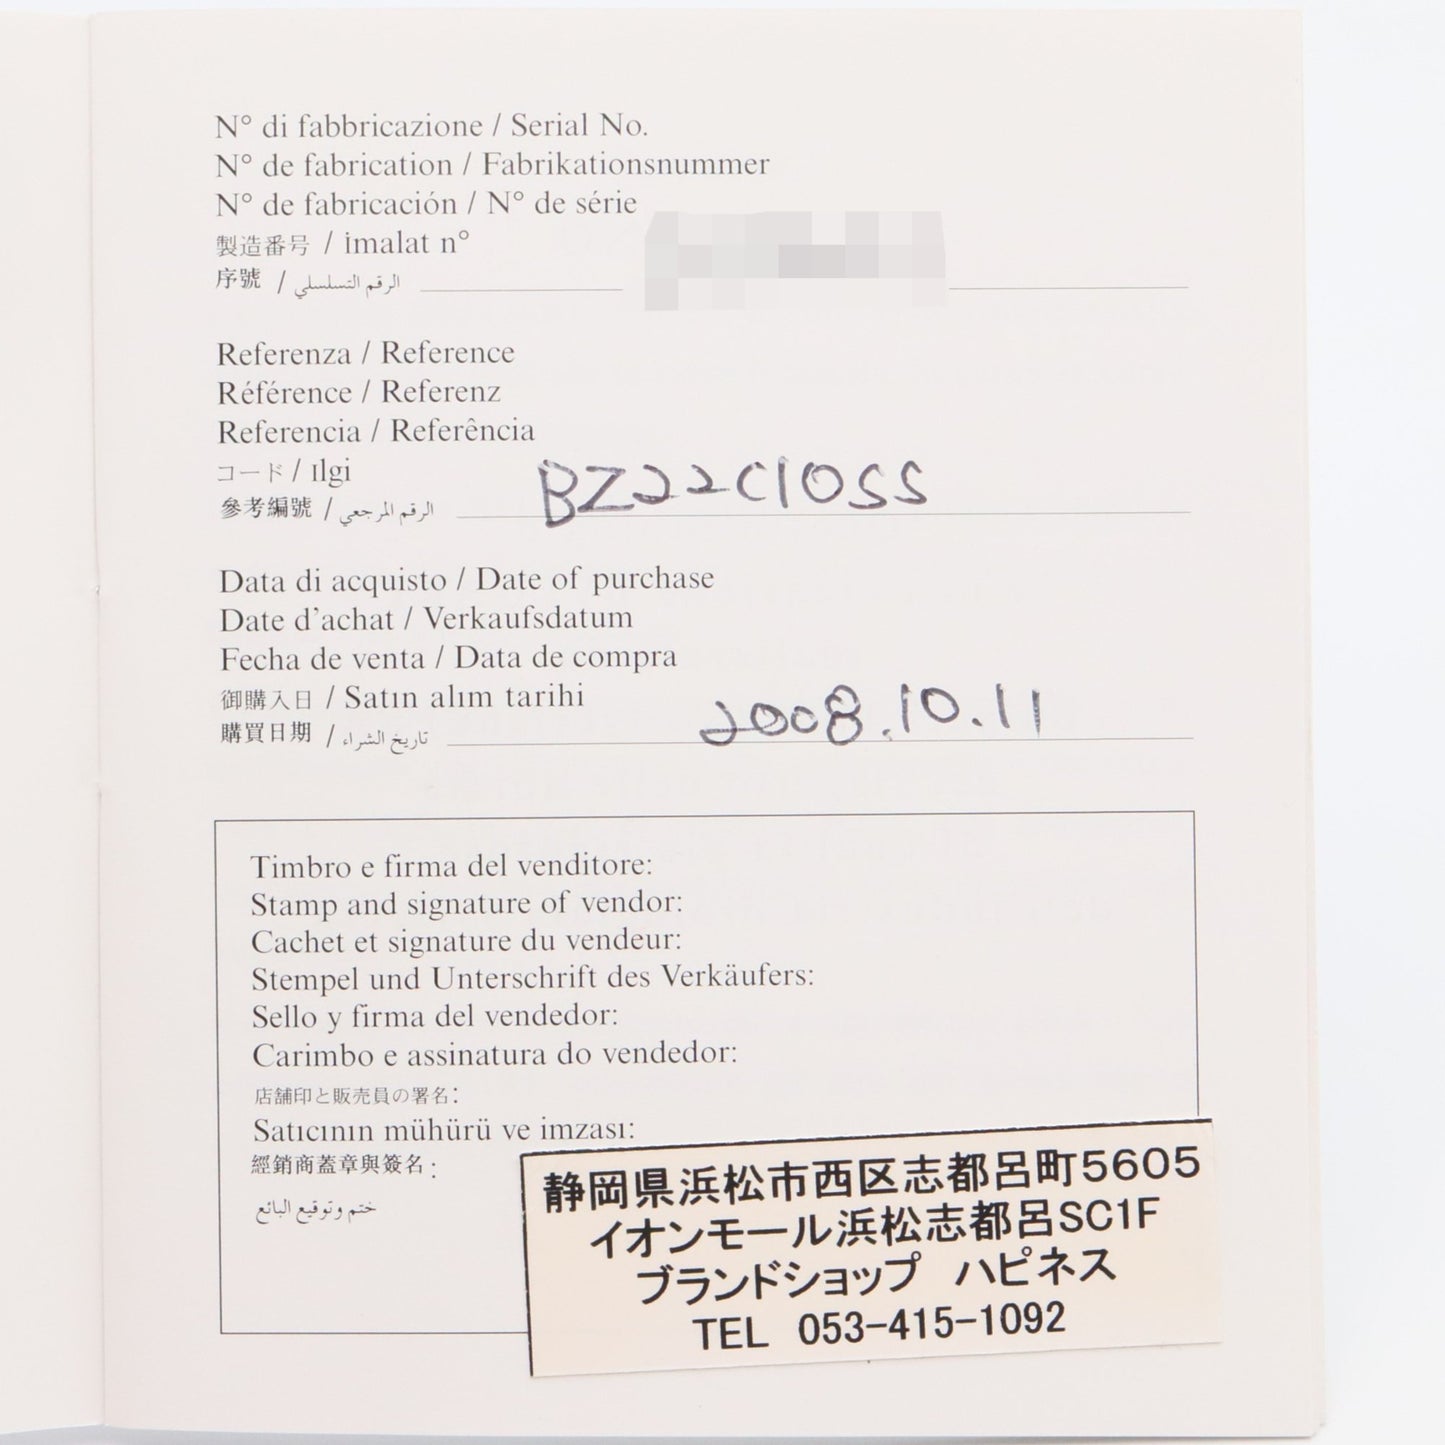 N° di fabbricazione / Serial No.
N° de fabrication / Fabrikationsnummer
N° de fabricación / N° de série
製造番号 / İmalat n°
序號 / الرقم التسلسلي
Referenza / Reference
Référence / Referenz
Referencia / Referência
コード / Ilgi
參考編號 / الرقم المرجعي
BZ22C10SS
Data di acquisto / Date of purchase
Date d'achat / Verkaufsdatum
Fecha de venta / Data de compra
御購入日 / Satın alım tarihi
購買日期 / تاريخ الشراء
2008.10.11
Timbro e firma del venditore:
Stamp and signature of vendor:
Cachet et signature du vendeur:
Stempel und Unterschrift des Verkäufers:
Sello y firma del vendedor:
Carimbo e assinatura do vendedor:
店舗印と販売員の署名:
Satıcının mühürü ve imzası:
經銷商蓋章與簽名:
ختم وتوقيع البائع
静岡県浜松市西区志都呂町5605
イオンモール浜松志都呂SC1F
ブランドショップ ハピネス
TEL 053-415-1092